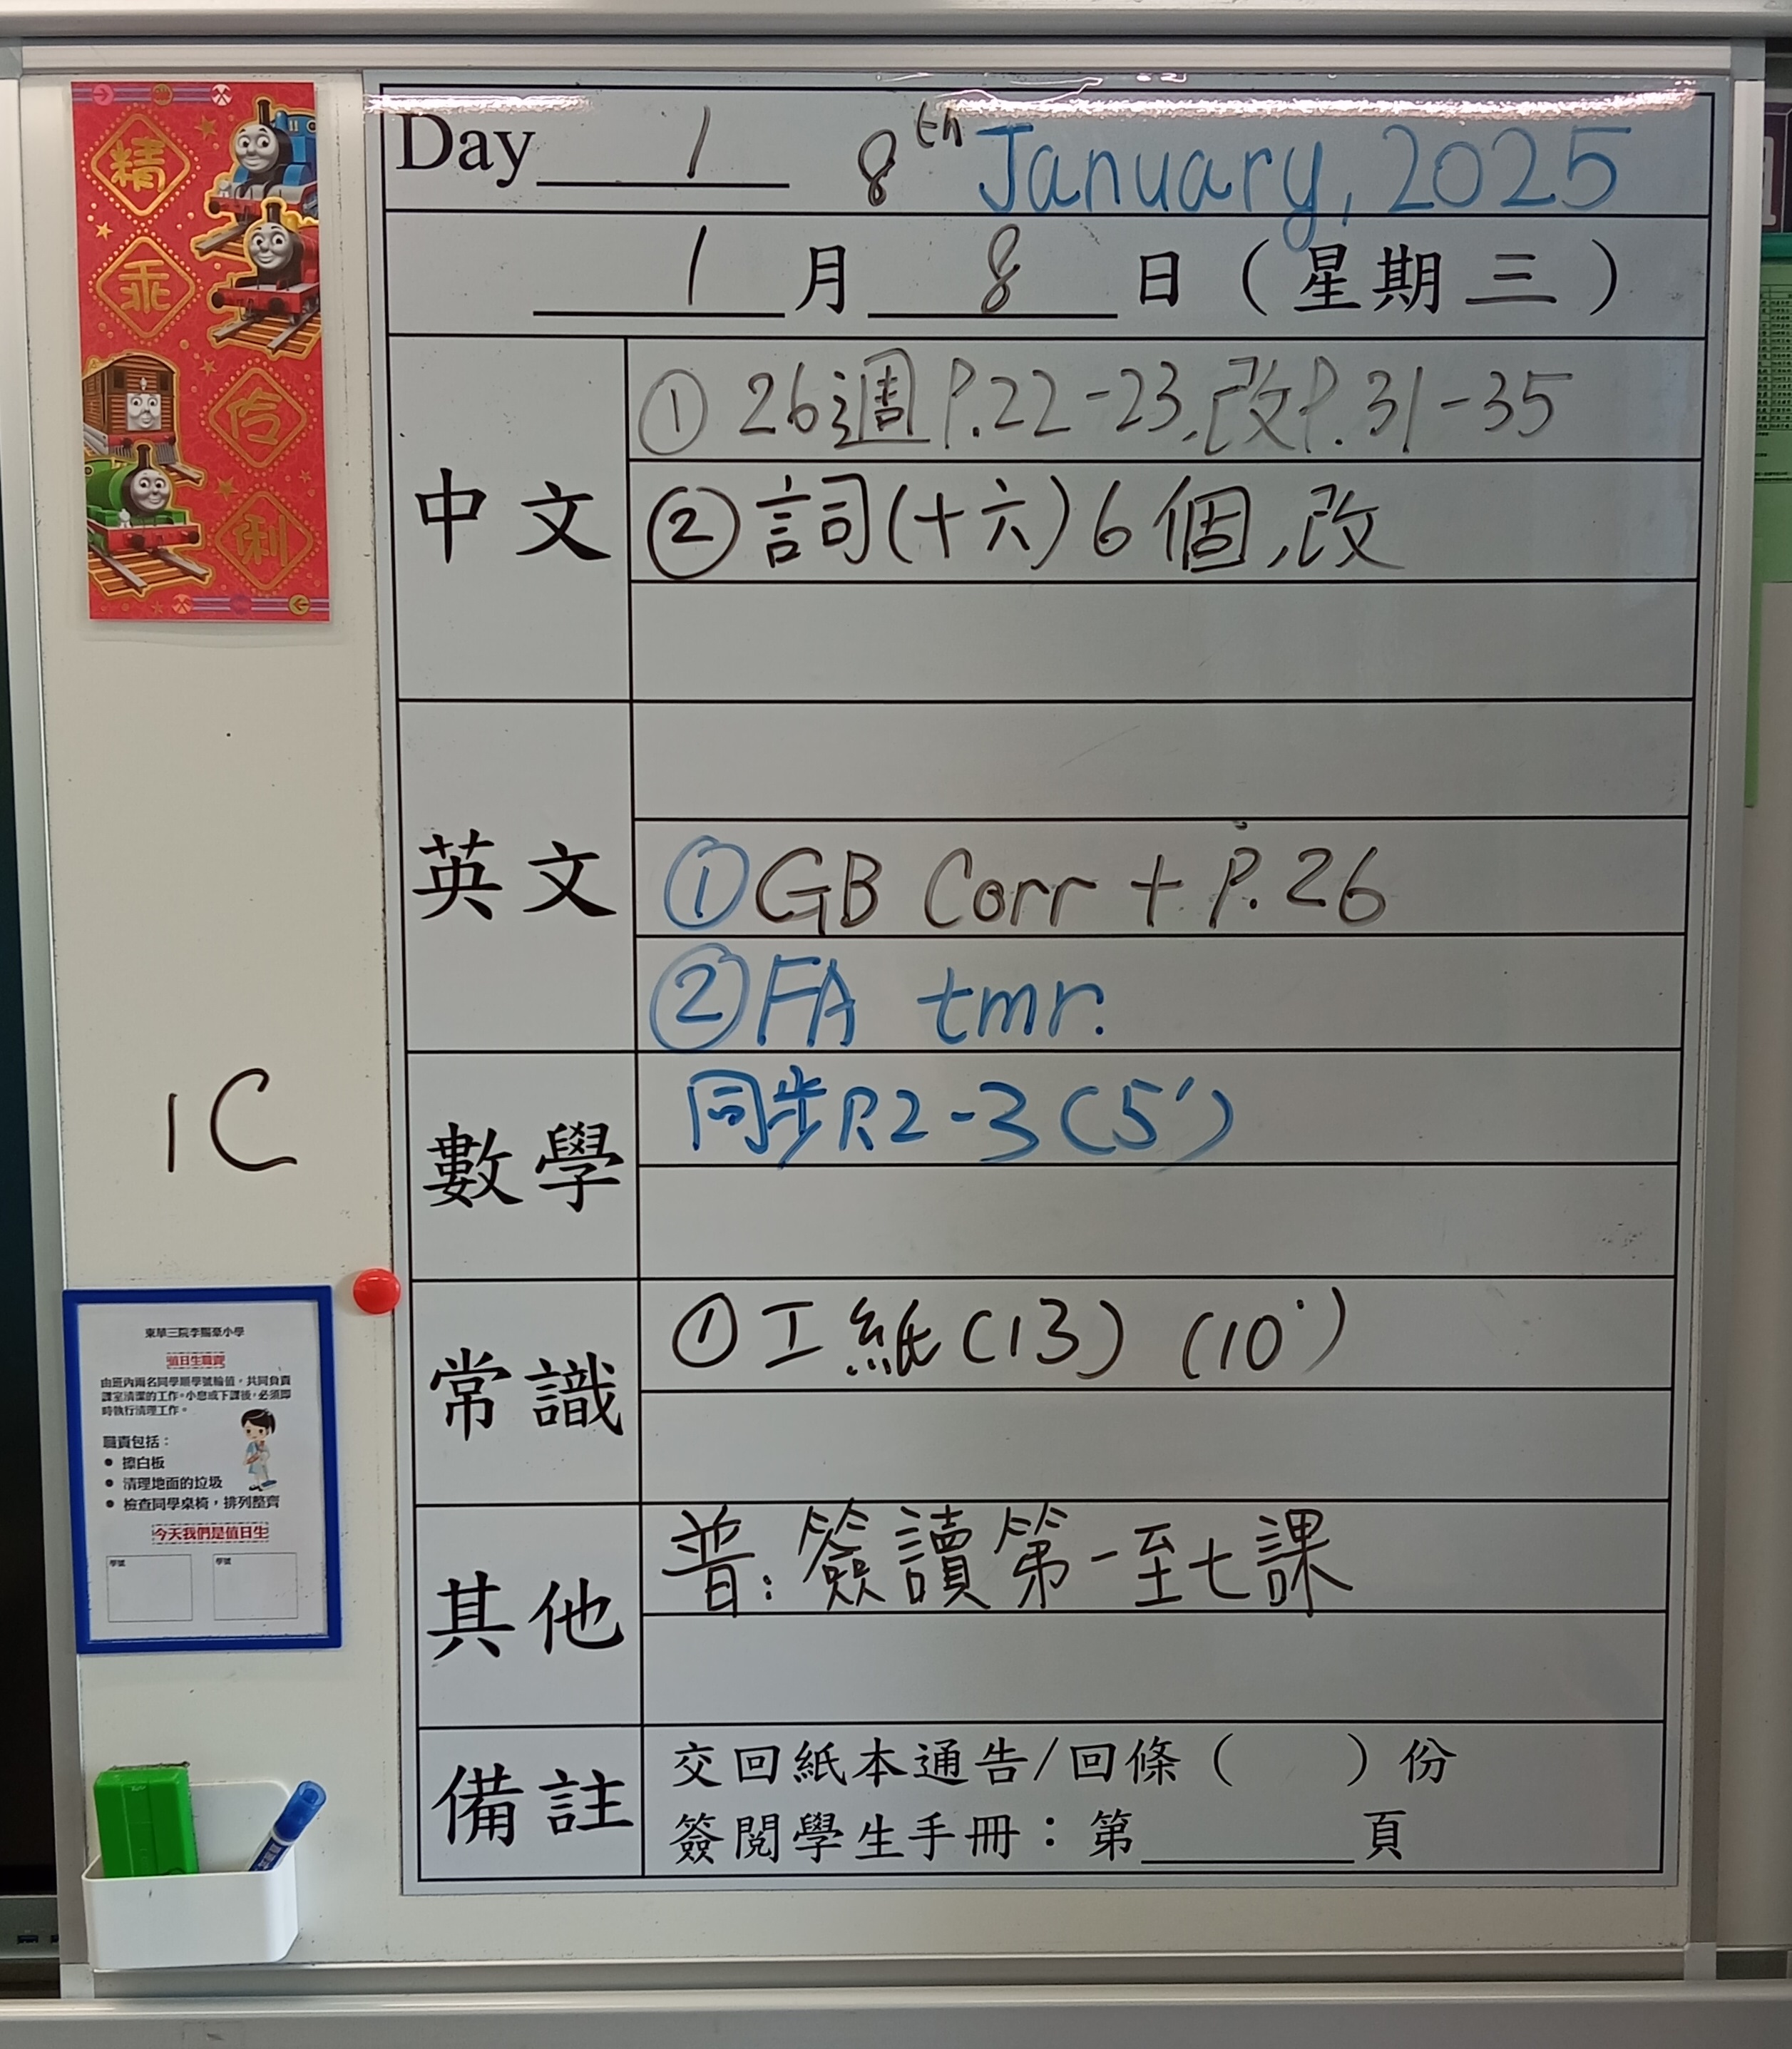 Day 1 8th January, 2025
1 月 8 日 ( 星期 三 )
中文
① 26週 P.22-23, 改P.31-35
② 詞(十六) 6個, 改
英文
① GB Corr + P.26
② FA tmr.
數學
同步P.2-3 (5')
常識
① 工紙 (13) (10')
其他
普: 簽讀第一至七課
備註
交回紙本通告/回條 ( ) 份
簽閱學生手冊：第 頁
精
乖
伶
俐
1C
東華三院李賜豪小學
值日生職責
由班內兩名同學順學號輪值，共同負責
課室清潔的工作。小息或下課後，必須即
時執行清理工作。
職責包括：
• 擦白板
• 清理地面的垃圾
• 檢查同學桌椅，排列整齊
今天我們是值日生
學號 學號